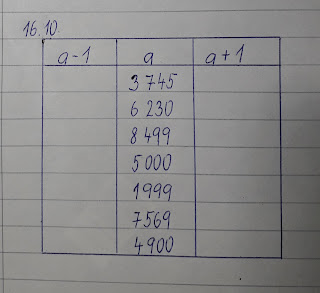 16.10.
a-1 a a+1
3 745
6 230
8 499
5 000
1 999
7 569
4 900